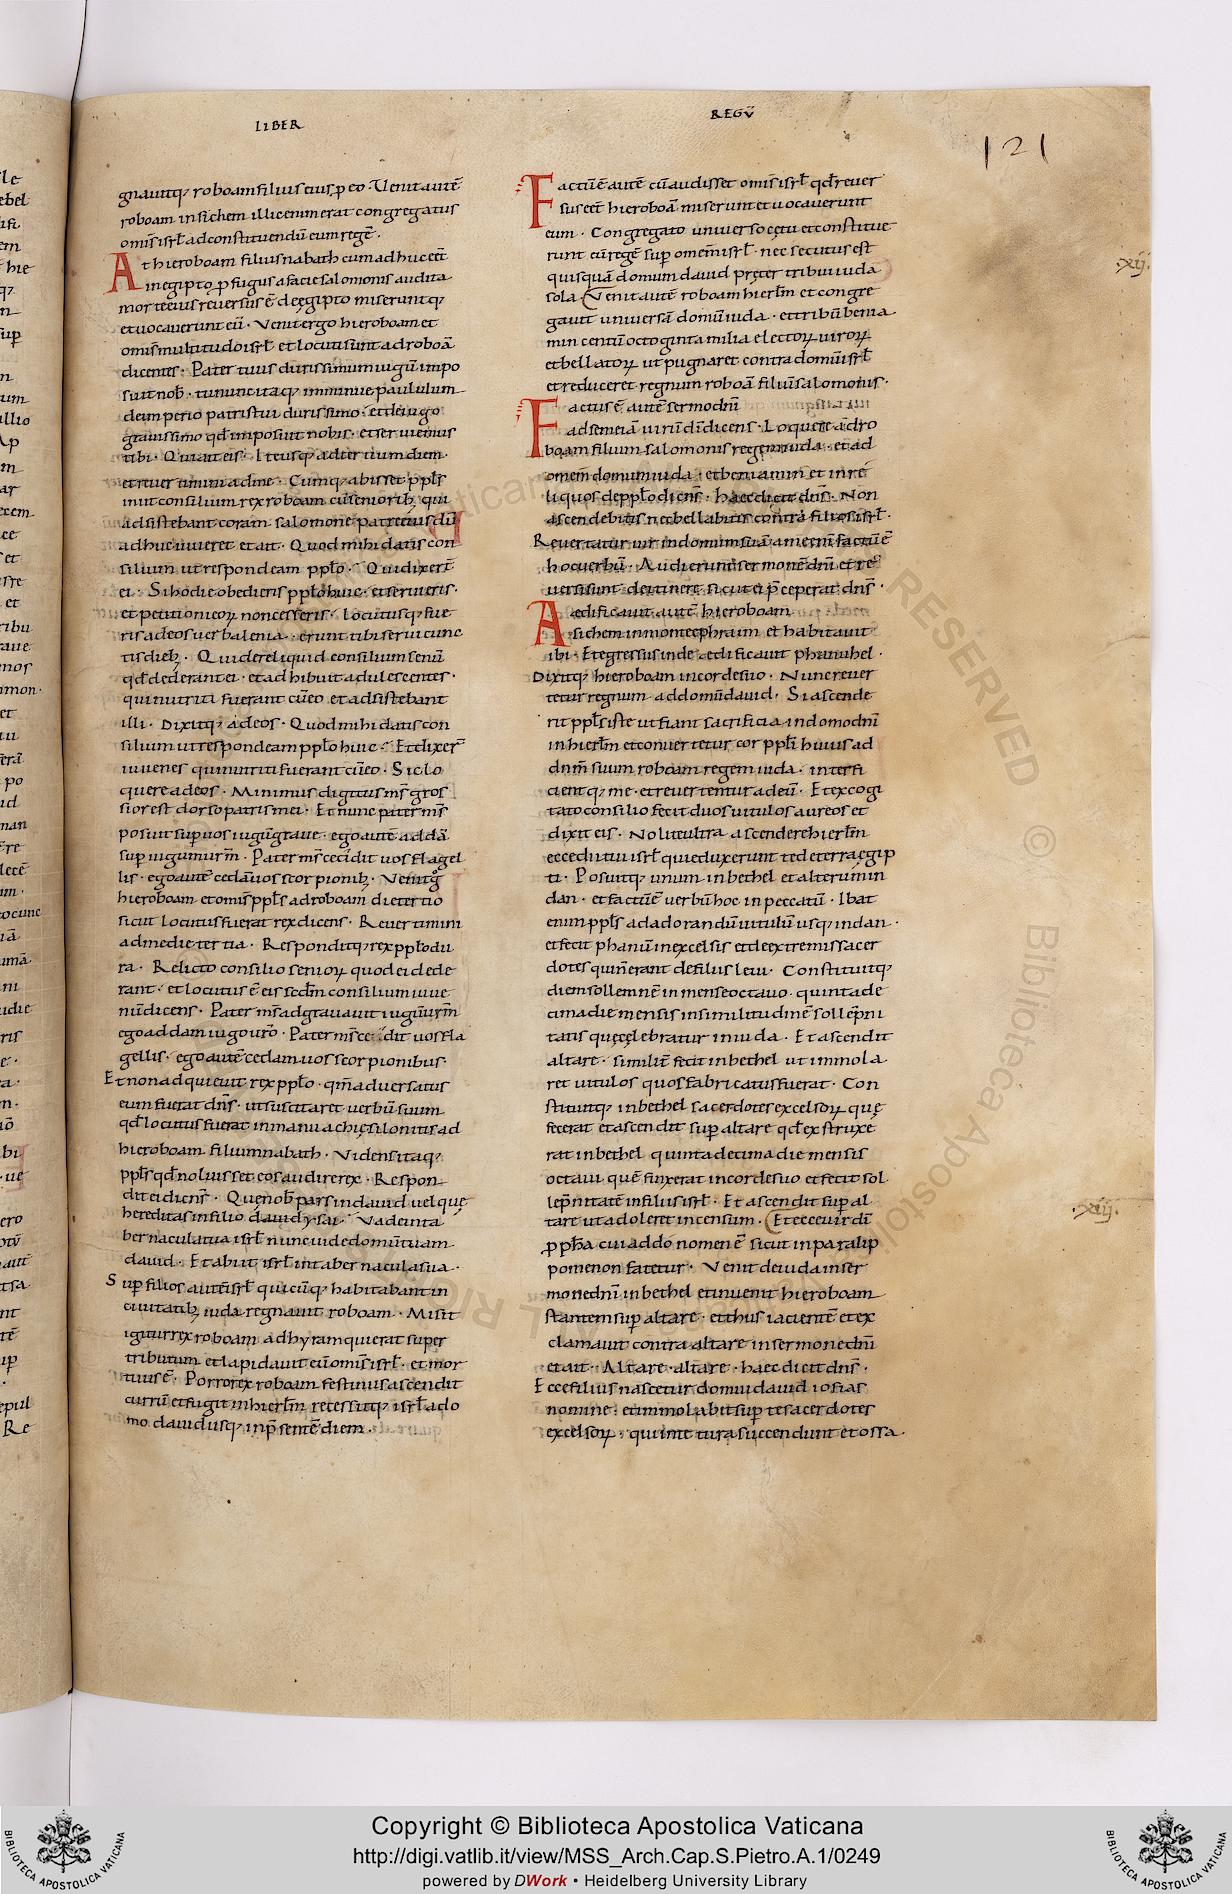 LIBER
REGŪ
121
gnauitq; roboam filius eius p eo · Venit autē
roboam in sichem illic enim erat congregatus
omīs isrl̄ ad constituendū eum regē ·
At hieroboam filius nabath cum adhuc eēt
in egipto profugus a facie salomonis audita
morte eius reuersus ē de ęgipto miseruntq;
et uocauerunt eū · Venit ergo hieroboam et
omīs multitudo isrl̄ et locuti sunt ad roboā
dicentes · Pater tuus durissimum iugū impo
suit nob̄ · tu nunc itaq; imminue paululum
de imperio patris tui durissimo · et de iugo
grauissimo qd̄ imposuit nobis · et seruiemus
tibi · Qui ait eis · Ite usq; ad tertium diem ·
et reuertimini ad me · Cumq; abisset ppl̄s
iniit consilium rex roboam cū seniorib; qui
adsistebant coram salomone patre eius dū
adhuc uiueret et ait · Quod mihi datis con
silium ut respondeam ppl̄o · Qui dixert̄
ei · Si hodie obedieris ppl̄o huic · et seruieris ·
et petitioni eor; non cesseris · locutusq; fue
ris ad eos uerba lenia · erunt tibi serui cunc
tis dieb; · Qui dereliquid consilium senū
qd̄ dederant ei · et adhibuit adulescentes ·
qui nutriti fuerant cū eo et adsistebant
illi · Dixitq; ad eos · Quod mihi datis con
silium ut respondeam ppl̄o huic · Et dixer̄
iuuenes qui nutriti fuerant cū eo · Sic lo
quere ad eos · Minimus digitus ms̄ gros
sior est dorso patris mei · Et nunc pater ms̄
posuit sup uos iugū graue · ego autē addā
sup iugum ur̄m · Pater ms̄ cecidit uos flagel
lis · ego autē cedā uos scorpionib; · Venit g̊
hieroboam et omīs ppl̄s ad roboam die tertio
sicut locutus fuerat rex dicens · Reuertimini
ad me die tertia · Responditq; rex ppl̄o du
ra · Relicto consilio senior; quod ei dede
rant · et locutus ē eis scdm̄ consilium iuue
nū dicens · Pater ms̄ adgrauauit iugū ur̄m
ego addam iugo ur̄o · Pater ms̄ cecidit uos fla
gellis · ego autē cedam uos scorpionibus ·
Et non adquieuit rex ppl̄o · qm̄ aduersatus
eum fuerat dn̄s · ut suscitaret uerbū suum
qd̄ locutus fuerat in manu achię silonitis ad
hieroboam filium nabath · Videns itaq;
ppl̄s qd̄ noluisset eos audire rex · Respon
dit ei dicns̄ · Quę nob̄ pars in dauid uel quę
hereditas in filio dauid ysai · Vade in ta
bernacula tua isrl̄ nunc uide domū tuam
dauid · Et abiit isrl̄ in tabernacula sua ·
Sup filios autē isrl̄ quicūq; habitabant in
ciuitatib; iuda regnauit roboam · Misit
igitur rex roboam adhyram qui erat super
tributum et lapidauit eū omīs isrl̄ · et mor
tuus ē · Porro rex roboam festinus ascendit
currū et fugit in hierlm̄ recessitq; isrl̄ a do
mo dauid usq; in p̄sentē diem ·
Factū ē autē cū audisset omīs isrl̄ qd̄ reuer
sus eēt hieroboā miserunt et uocauerunt
eum · Congregato uniuerso cętu et constitue
runt eū regē sup omem̄ isrl̄ · nec secutus est
quisquā domum dauid pręter tribū iuda
sola · Venit autē roboam hierlm̄ et congre
gauit uniuersā domū iuda · et tribū benia
min centū octoginta milia elector; uiror;
et bellator; ut pugnaret contra domū isrl̄
et reduceret regnum roboā filiū salomonis ·
.xij.
Factus ē autē sermo dn̄i
ad semeiā uirū dī dicens · Loquere ad ro
boam filium salomonis regem iuda · et ad
omem̄ domum iuda · et beniamin et in re
liquos de ppl̄o dicns̄ · haec dicit dn̄s · Non
ascendebitis nec bellabitis contra filios isrl̄ ·
Reuertatur uir in domum suā a me enī factū ē
hoc uerbū · Audierunt sermonē dn̄i et re
uersi sunt de itinere sicut eis p̄ceperat dn̄s ·
Aedificauit autē hieroboam
sichem in monte ephraim et habitauit
ibi · Et egressus inde aedificauit phanuhel ·
Dixitq; hieroboam in corde suo · Nunc reuer
tetur regnum ad domū dauid · Si ascende
rit ppl̄s iste ut fiant sacrificia in domo dn̄i
in hierlm̄ et conuertetur cor ppl̄i huius ad
dnm̄ suum roboam regem iuda · interfi
cientq; me · et reuertentur ad eū · Et excogi
tato consilio fecit duos uitulos aureos et
dixit eis · Nolite ultra ascendere hierlm̄
ecce dii tui isrl̄ qui eduxerunt te de terra egip
ti · Posuitq; unum in bethel et alterum in
dan · et factū ē uerbū hoc in peccatū · Ibat
enim ppl̄s ad adorandū uitulū usq; in dan ·
et fecit phanū in excelsis et de extremis sacer
dotes qui n̄ erant de filiis leui · Constituitq;
diem sollemnē in mense octauo · quinta de
cima die mensis in similitudinē sollēpni
tatis quę celebratur in iuda · Et ascendit
altare · similit̄ fecit in bethel ut immola
ret uitulos quos fabricatus fuerat · Con
stituitq; in bethel sacerdotes excelsor; quę
fecerat et ascendit sup altare qd̄ extruxe
rat in bethel quinta decima die mensis
octaui quē finxerat in corde suo et fecit sol
lep̄nitatē in filiis isrl̄ · Et ascendit sup al
tare ut adoleret incensum · Et ecce uir dī
.xiij.
ppha cui addo nomen ē sicut in paralip
pomenon fatetur · Venit de iuda in ser
mone dn̄i in bethel et inuenit hieroboam
stantem sup altare · et thus iacientē et ex
clamauit contra altare in sermone dn̄i
et ait · Altare altare · haec dicit dn̄s ·
Ecce filius nascetur domui dauid iosias
nomine · et immolabit sup te sacerdotes
excelsor; · qui in te tura succendunt et ossa
Copyright © Biblioteca Apostolica Vaticana
http://digi.vatlib.it/view/MSS_Arch.Cap.S.Pietro.A.1/0249
powered by DWork • Heidelberg University Library